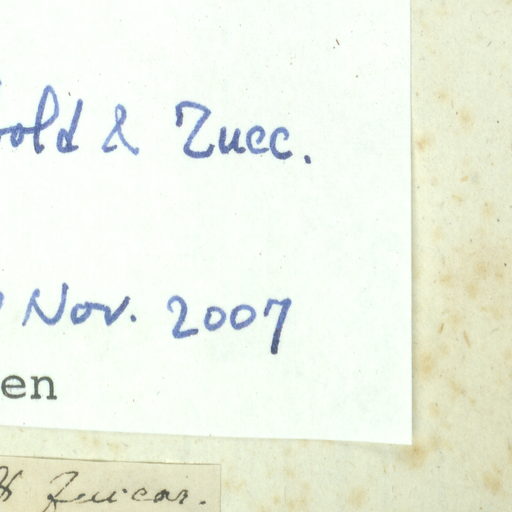 bold & Zucc.
Nov. 2007
en
Zuccar.